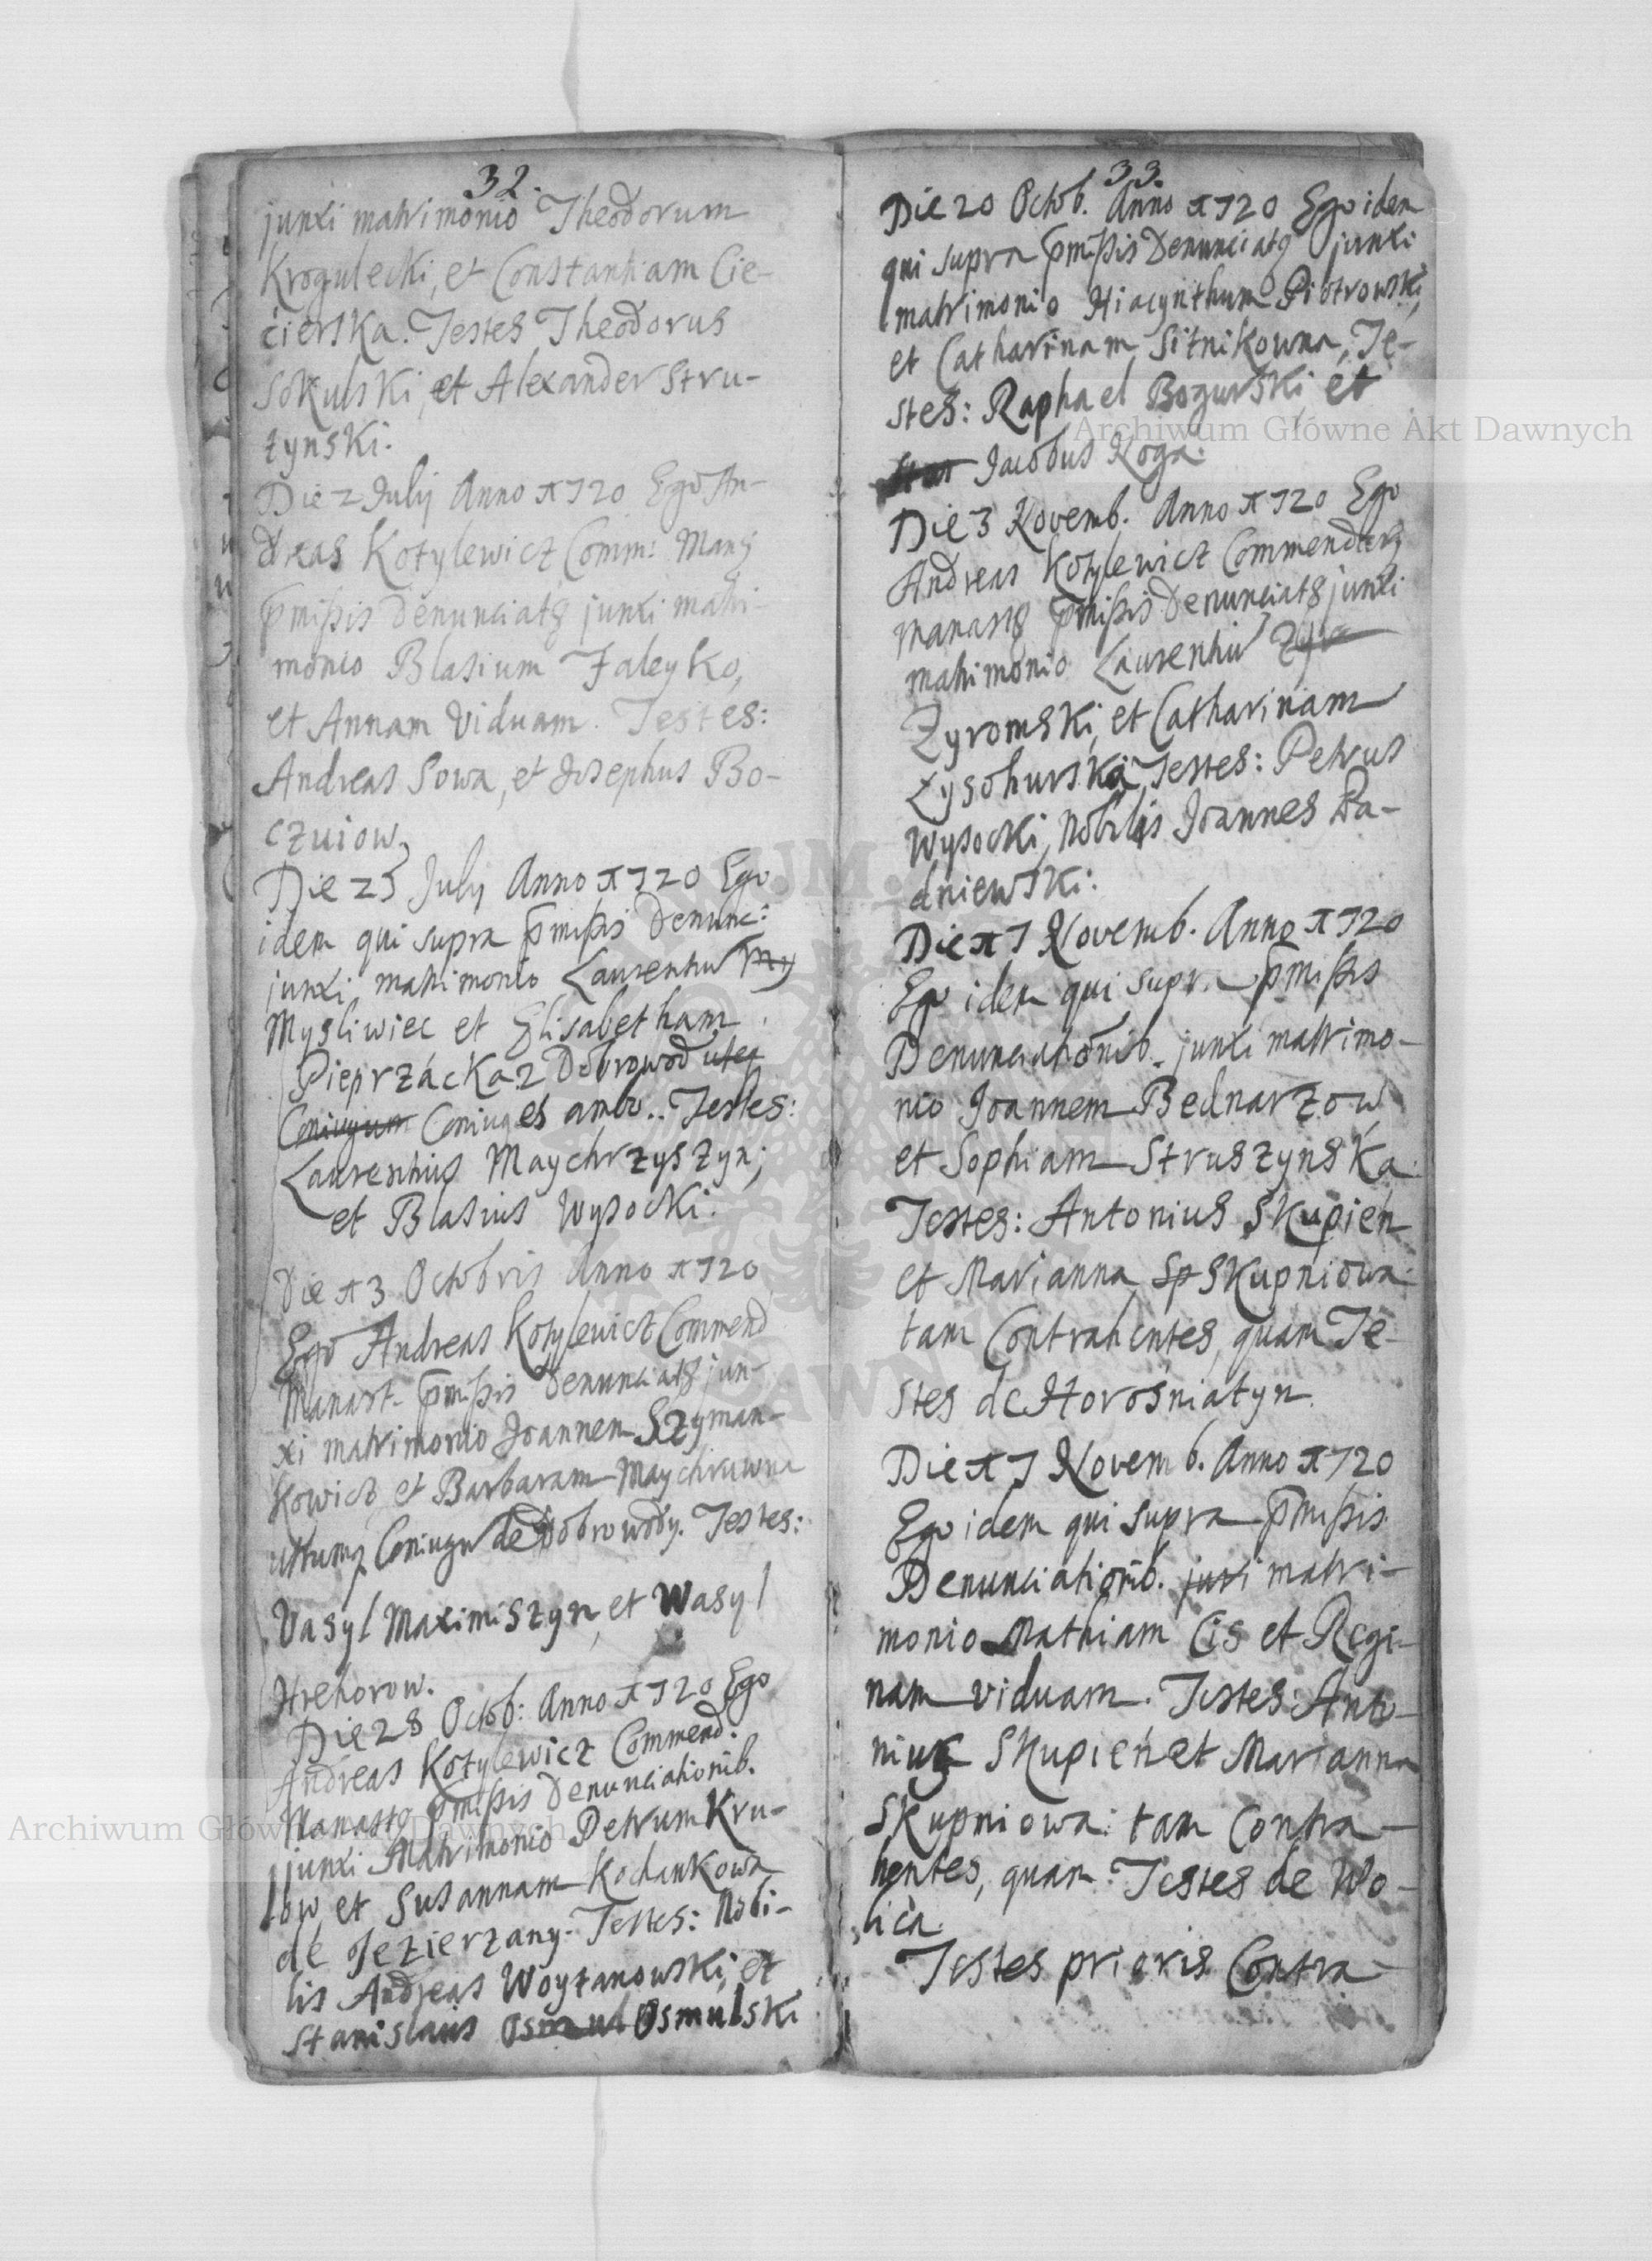 32.
junxi matrimonio Theodorum
Krogulecki, et Constantiam Cie-
cierska. Testes Theodorus
Sokulski, et Alexander Stru-
żynski.
Die 2 Julij Anno 1720 Ego An-
dreas Kotylewicz Comm: Man9
p̄missis Denunciat9 junxi matri-
monio Blasium Faleyko,
et Annam Viduam. Testes:
Andreas Sowa, et Josephus Bo-
czuiow.
Die 25 July Anno 1720 Ego
idem qui supra p̄missis Denunc:
junxi matrimonio Laurentiū My
Mysliwiec et Elisabetham
Pieprzácka z Dobrowod uteq
Coniugum Coniuges ambo.. Testes:
Laurentius Maychrzyszyn;
et Blasius Wysocki:
Die 13 Octobris Anno 1720
Ego Andreas Kotylewicz Commend
Manast. p̄missis Denunciat9 jun-
xi matrimonio Joannem Szyman-
kowicz, et Barbaram Maychruwna
utrumq Coniugū de Dobrowody. Testes:
Vasyl Maximiszyn, et Wasyl
Hrehorow.
Die 28 Octob: Anno 1720 Ego
Andreas Kotylewicz Commend:
Manast9 p̄missis Denunciationib.
junxi Matrimonio Petrum Kru-
low et Susannam Kochankowa
de Jezierzany. Testes: Nobi-
lis Andreas Woyzanowski, et
Stanislaus Osmul Osmulski
33.
Die 20 Octob. Anno 1720 Ego idem
qui supra p̄missis Denunciat9 junxi
matrimonio Hiacynthum Piotrowski,
et Catharinam Sitnikowna, Te-
stes: Raphael Bogurski et
Jacobus Noga.
Die 3 Novemb. Anno 1720 Ego
Andreas Kotylewicz Commendar9
Manast9 p̄missis Denunciat9 junxi
matrimonio Laurentiū Zyr
Zyromski, et Catharinam
Łysohurska, Testes: Petrus
Wysocki, Nobilis Joannes Ra-
dniewski:
Die 17 Novemb. Anno 1720
Ego idem qui supr. p̄missis
Denunciationib. junxi matrimo-
nio Joannem Bednarzow,
et Sophiam Struszynska.
Testes: Antonius Skupień
et Marianna Sp Skupniowa:
tam Contrahentes, quam Te-
stes de Horośniatyn.
Die 17 Novemb. Anno 1720
Ego idem qui supra p̄missis
Denunciationib. juxi matri-
monio Mathiam Cis et Regi-
nam viduam. Testes: Anto-
nius Skupień et Marianna
Skupniowa: tam Contra-
hentes, quam Testes de Wo-
lica.
Testes prioris Contra-
Archiwum Główne Akt Dawnych
Archiwum Główne Akt Dawnych